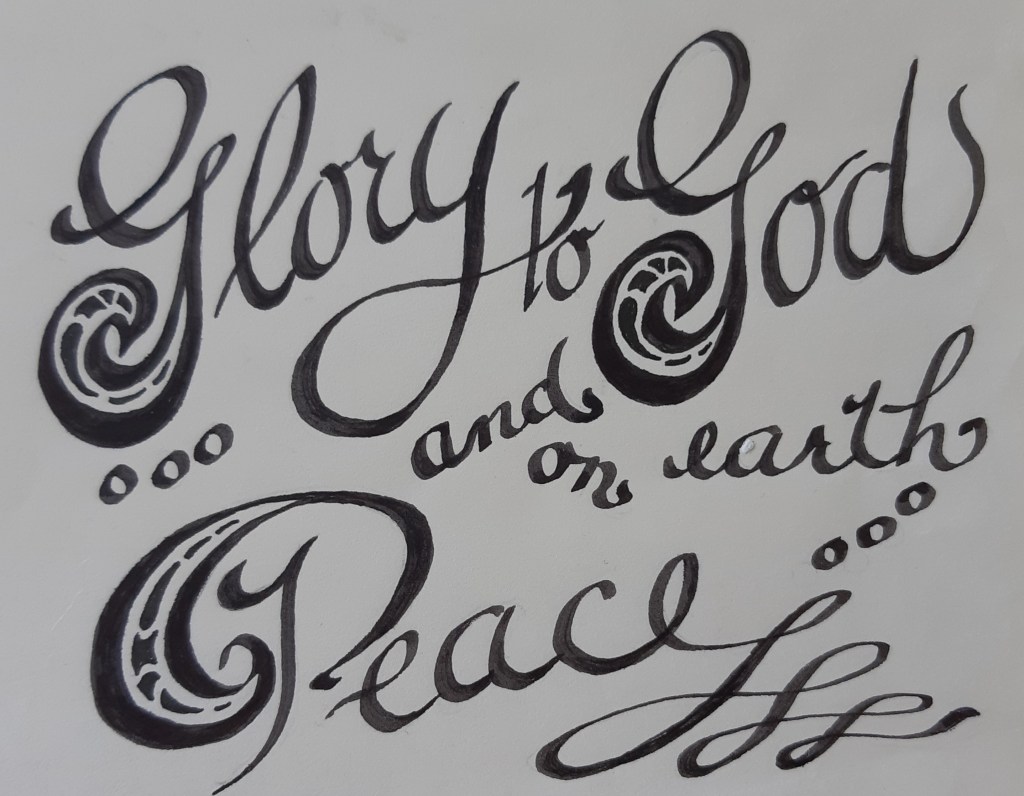 Glory to God
and on earth
Peace